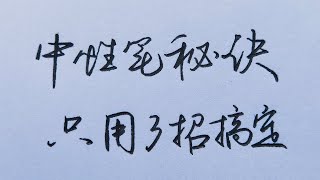 中性笔秘诀
只用3招搞定